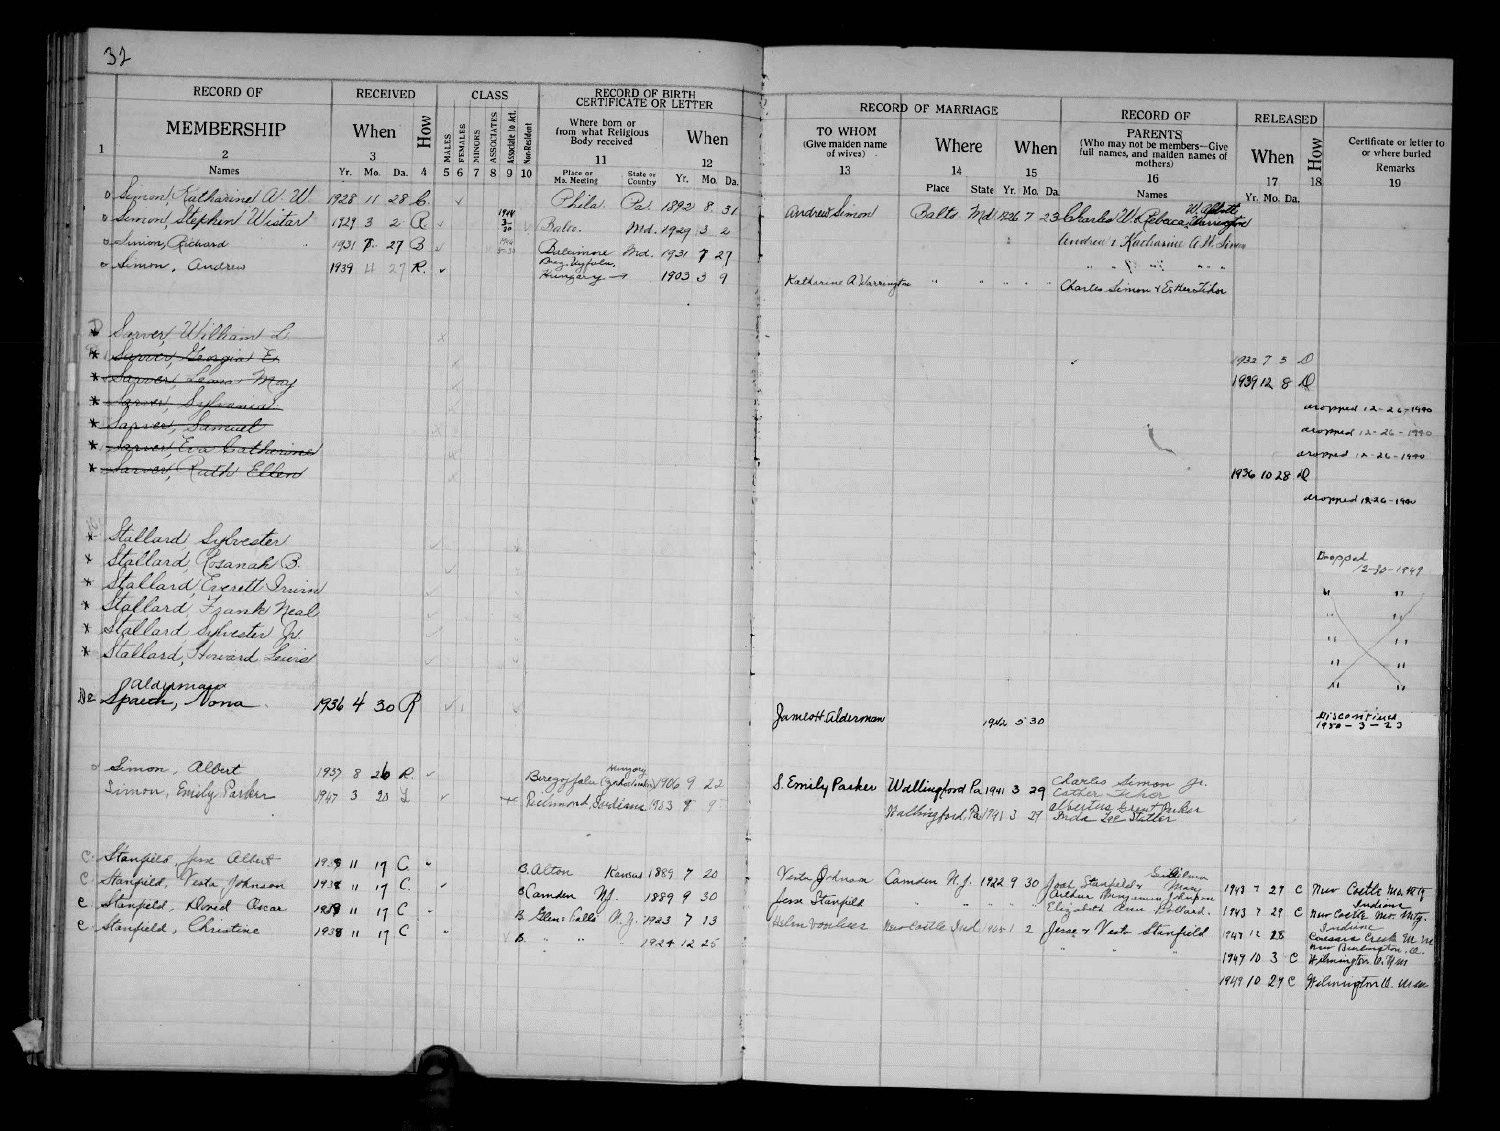 32
RECORD OF
MEMBERSHIP
1
2
Names
RECEIVED
When
3
Yr. Mo. Da.
How
4
CLASS
MALES
FEMALES
MINORS
ASSOCIATES
Associate to Act.
Non-Resident
5 6 7 8 9 10
RECORD OF BIRTH
CERTIFICATE OR LETTER
Where born or
from what Religious
Body received
11
Place or
Mo. Meeting
State or
Country
When
12
Yr. Mo. Da.
RECORD OF MARRIAGE
TO WHOM
(Give maiden name
of wives)
13
Where
14
Place State
When
15
Yr. Mo. Da.
RECORD OF
PARENTS
(Who may not be members—Give
full names, and maiden names of
mothers)
16
Names
RELEASED
When
17
Yr. Mo. Da.
How
18
Certificate or letter to
or where buried
Remarks
19
o Simon, Katharine A. W. 1928 11 28 C. Phila. Pa. 1892 8 31 Andrew Simon Balto. Md. 1926 7 23 Charles W. & Rebecca W. Warrington
o Simon, Stephen Wistar 1929 3 2 B. Balto. Md. 1929 3 2 Andrew & Katharine A. W. Simon
o Simon, Richard 1931 7 27 B Baltimore Md. 1931 7 27 " " " "
o Simon, Andrew 1939 4 27 R. Hungary 1903 3 9 Katharine A Warrington " " " " " Charles Simon & Esther Fehor
* Sarver, William L.
* Sarver, Georgia E. 1932 7 5 D
* Sarver, Lena May 1939 12 8 D
* Sarver, Sylvania dropped 12-26-1940
* Sarver, Samuel dropped 12-26-1940
* Sarver, Eva Catherine dropped 12-26-1940
* Sarver, Ruth Ellen 1936 10 28 D
dropped 12-26-1940
* Stallard Sylvester
* Stallard, Rosanah B. Dropped
12-30-1949
* Stallard, Everett Irvin " "
* Stallard, Frank Neal " "
* Stallard Sylvester Jr. " "
* Stallard, Howard Lewis " "
" "
Alderman
Spaeth, Nona 1936 4 30 R James H Alderman 1942 5 30 Discontinued
1950-3-23
o Simon, Albert 1937 8 26 R. Hungary 1906 9 22 S. Emily Parker Wallingford Pa 1941 3 29 Charles Simon Jr.
Esther Fehor
Simon, Emily Parker 1947 3 20 L Richmond, Indiana 1903 8 9 Wallingford, Pa 1941 3 29 Albertus Grant Parker
C Stanfield, Jesse Albert 1938 11 17 C. B. Alton Kansas 1889 7 20 Vesta Johnson Camden N.J. 1922 9 30 Joel Stanfield & Mary 1943 7 29 C New Castle Mo. Mtg
Indiana
C Stanfield, Vesta Johnson 1938 11 17 C. B Camden N.J. 1889 9 30 Jesse Stanfield " " " " " Arthur Benjamin Johnson
Elizabeth Ann Pollard. 1943 7 29 C New Castle Mo. Mtg.
Indiana
C Stanfield, David Oscar 1938 11 17 C B Glens Falls N.Y. 1923 7 13 New Castle Ind. 1 2 Jesse & Vesta Stanfield 1947 12 28 Caesars Creek M M
New Burlington, O.
C Stanfield, Christine 1938 11 17 C B. " " " 1924 12 25 " " 1947 10 3 C Wilmington O. M M
1949 10 29 C Wilmington O. M M